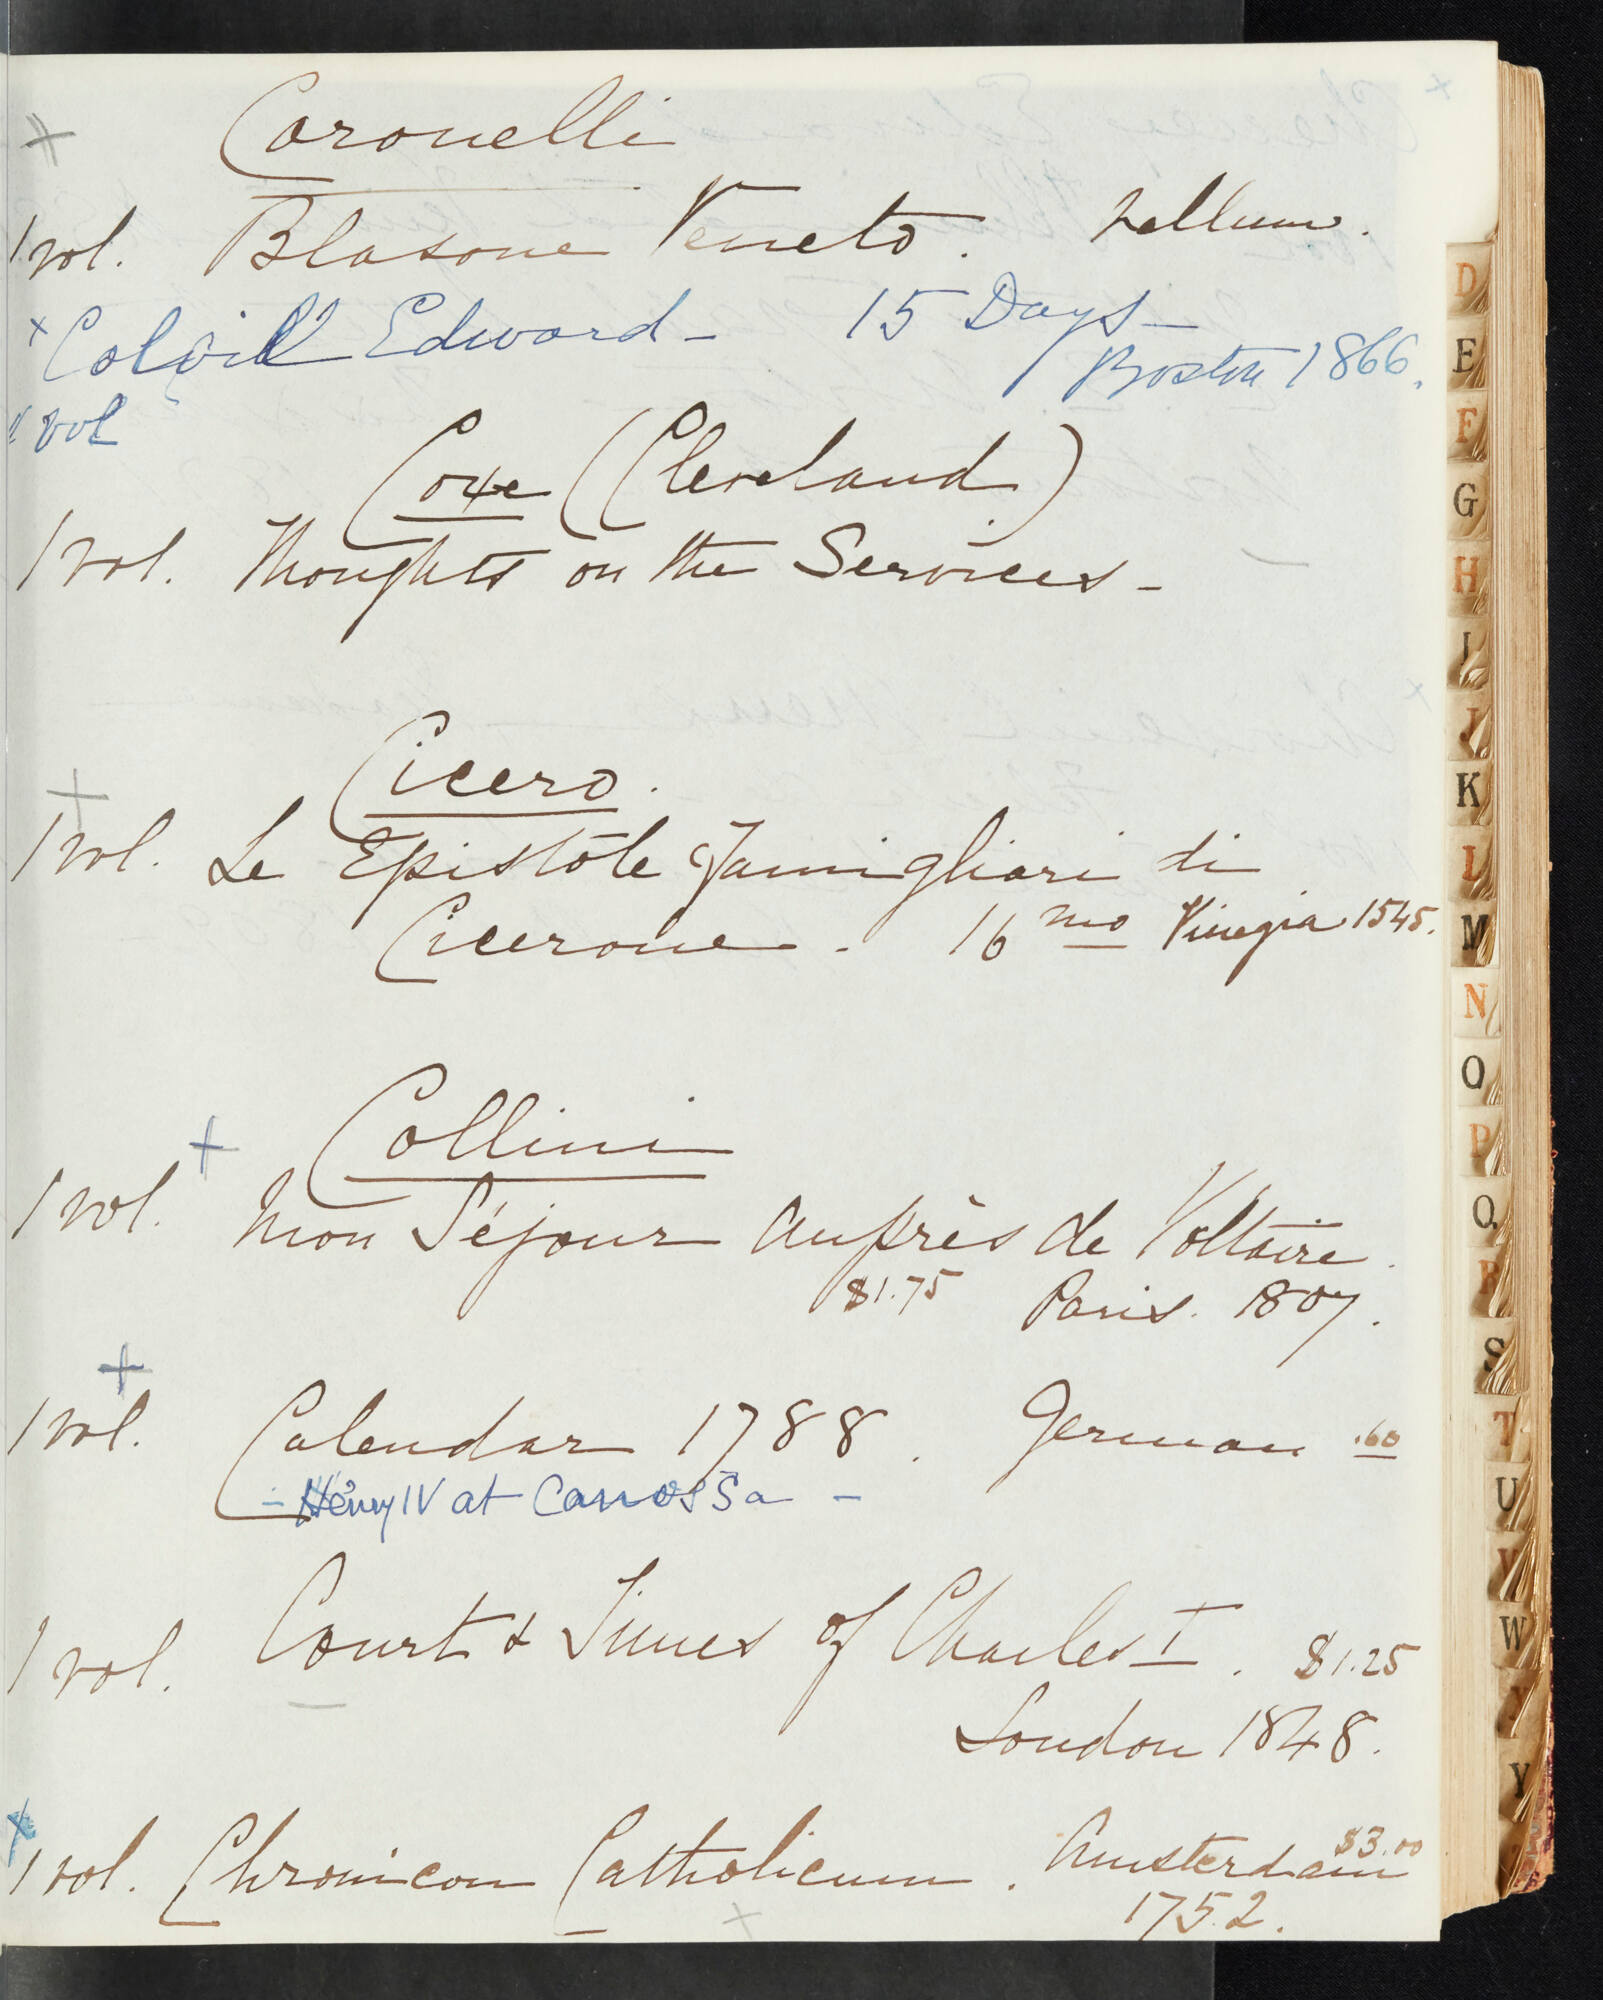 Coronelli
1 vol. Blasone Veneto. Vellum.
Colvill Edward - 15 Days -
Boston 1866.
1 vol
Coxe (Cleveland)
1 vol. Thoughts on the Services -
Cicero.
1 vol. Le Epistole Famigliari di
Cicerone. 16mo Vinegia 1545.
Collini
1 vol. Mon Séjour auprès de Voltaire.
$1.75 Paris. 1807.
1 vol. Calendar 1788. German .60
- Henry IV at Canossa -
1 vol. Court & Times of Charles I. $1.25
London 1848.
$3.00
1 vol. Chronicon Catholicum. Amsterdam
1752.
D
E
F
G
H
I
J
K
L
M
N
O
P
Q
R
S
T
U
V
W
Y